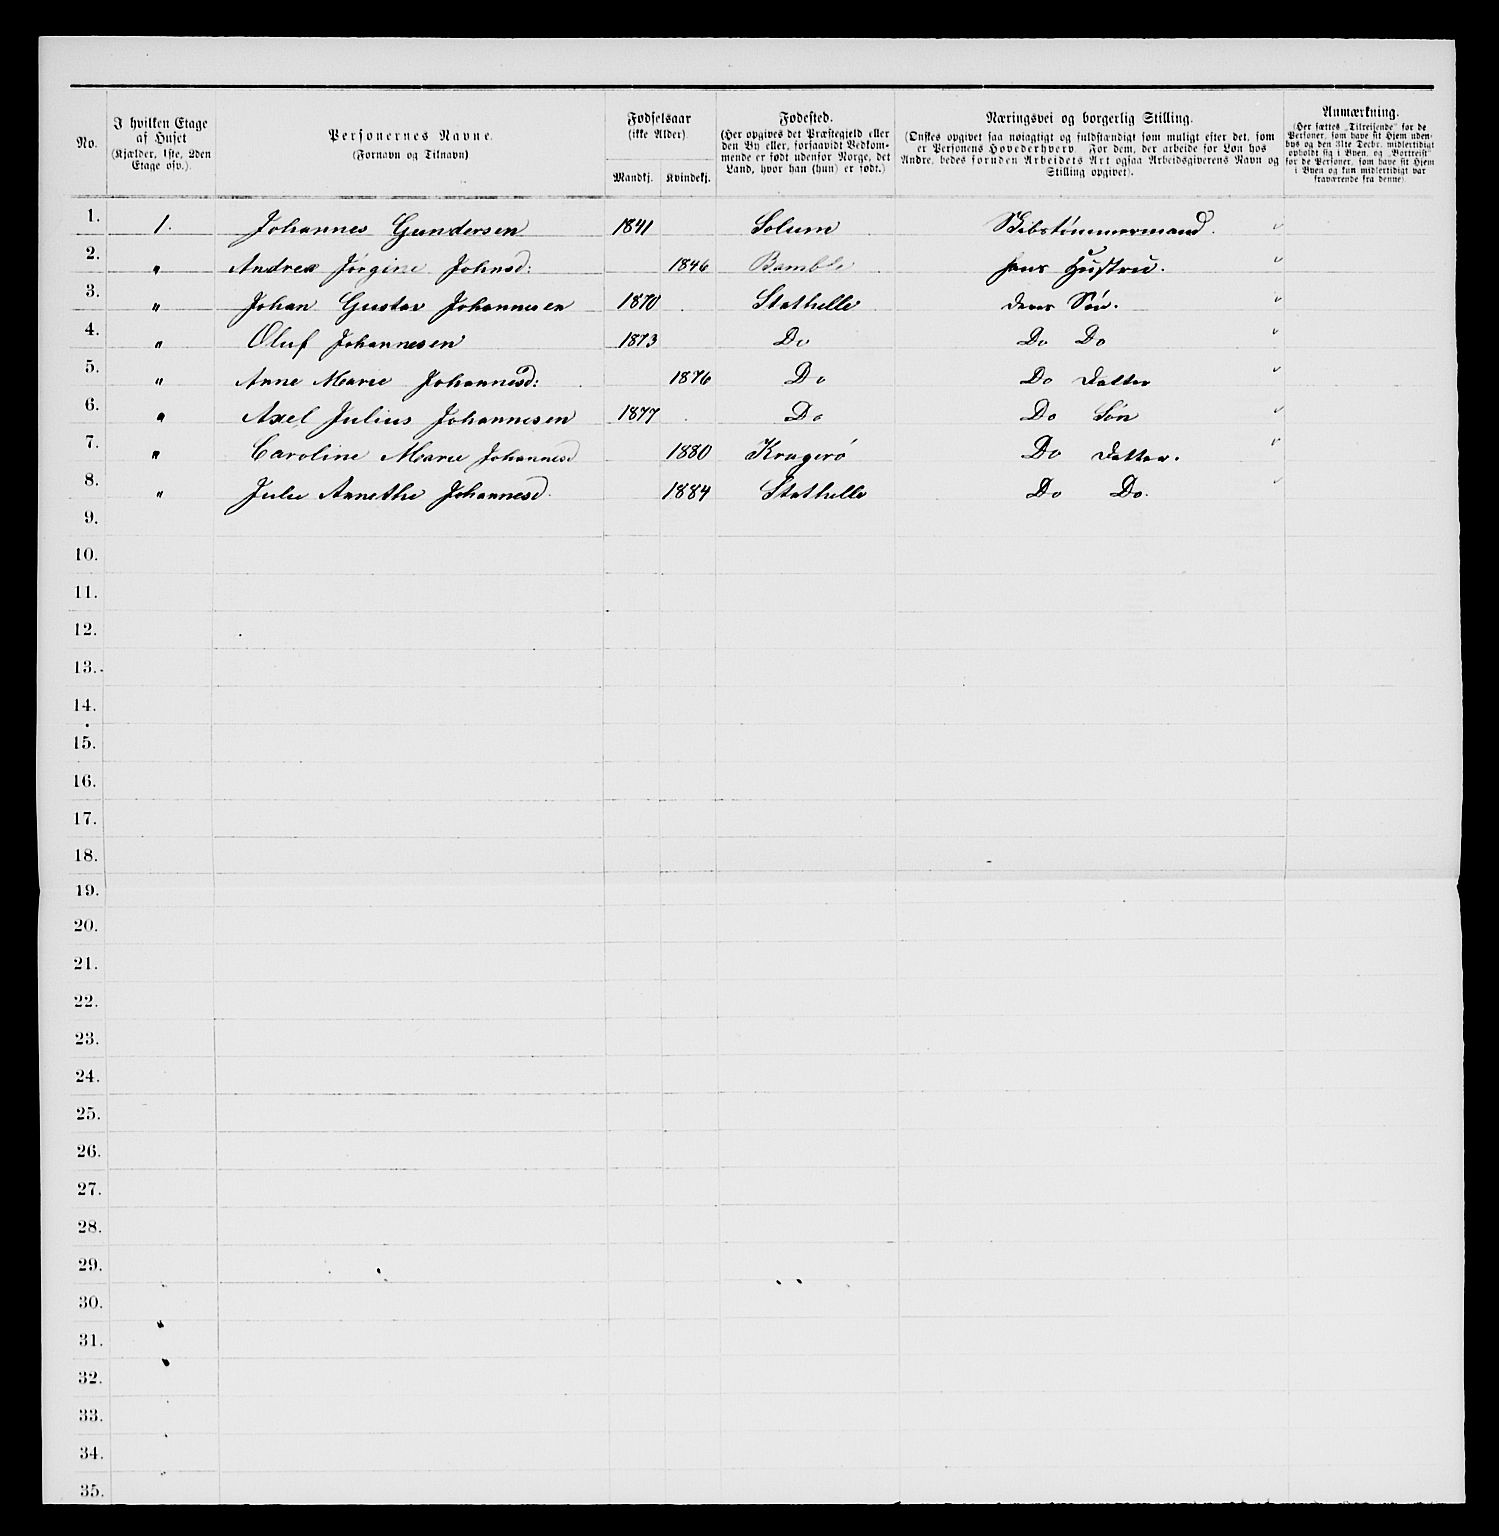 No.
I hvilken Etage
af Huset
(Kjælder, 1ste, 2den
Etage osv.).
Personernes Navne.
(Fornavn og Tilnavn)
Fødselsaar
(ikke Alder).
Mandkj. Kvindekj.
Fødested.
(Her opgives det Præstegjeld eller
den By eller, forsaavidt Vedkom-
mende er født udenfor Norge, det
Land, hvor han (hun) er født.)
Næringsvei og borgerlig Stilling.
(Ønskes opgivet saa nøiagtigt og fuldstændigt som muligt efter det, som
er Personens Hovederhverv. For dem, der arbeide for Løn hos
Andre, bedes foruden Arbeidets Art ogsaa Arbeidsgiverens Navn og
Stilling opgivet).
Anmærkning.
(Her sættes „Tilreisende“ for de
Personer, som have sit Hjem uden-
bys og den 31te Decbr. midlertidigt
opholdt sig i Byen, og „Bortreist“
for de Personer, som have sit Hjem
i Byen og kun midlertidigt var
fraværende fra denne).
1. 1. Johannes Gundersen 1841 Solum Skibstømmermand. "
2. " Andrea Jørgine Johnsd: 1846 Bamble hans Hustru. "
3. " Johan Gustav Johannesen 1870 Stathelle deres Søn. "
4. " Oluf Johannesen 1873 Do Do Do "
5. " Anne Marie Johannesd: 1876 Do Do Datter "
6. " Axel Julius Johannesen 1877 Do Do Søn "
7. " Caroline Marie Johannesd 1880 Kragerø Do Datter. "
8. " Julie Annethe Johannesd. 1884 Stathelle Do Do. "
9.
10.
11.
12.
13.
14.
15.
16.
17.
18.
19.
20.
21.
22.
23.
24.
25.
26.
27.
28.
29.
30.
31.
32.
33.
34.
35.